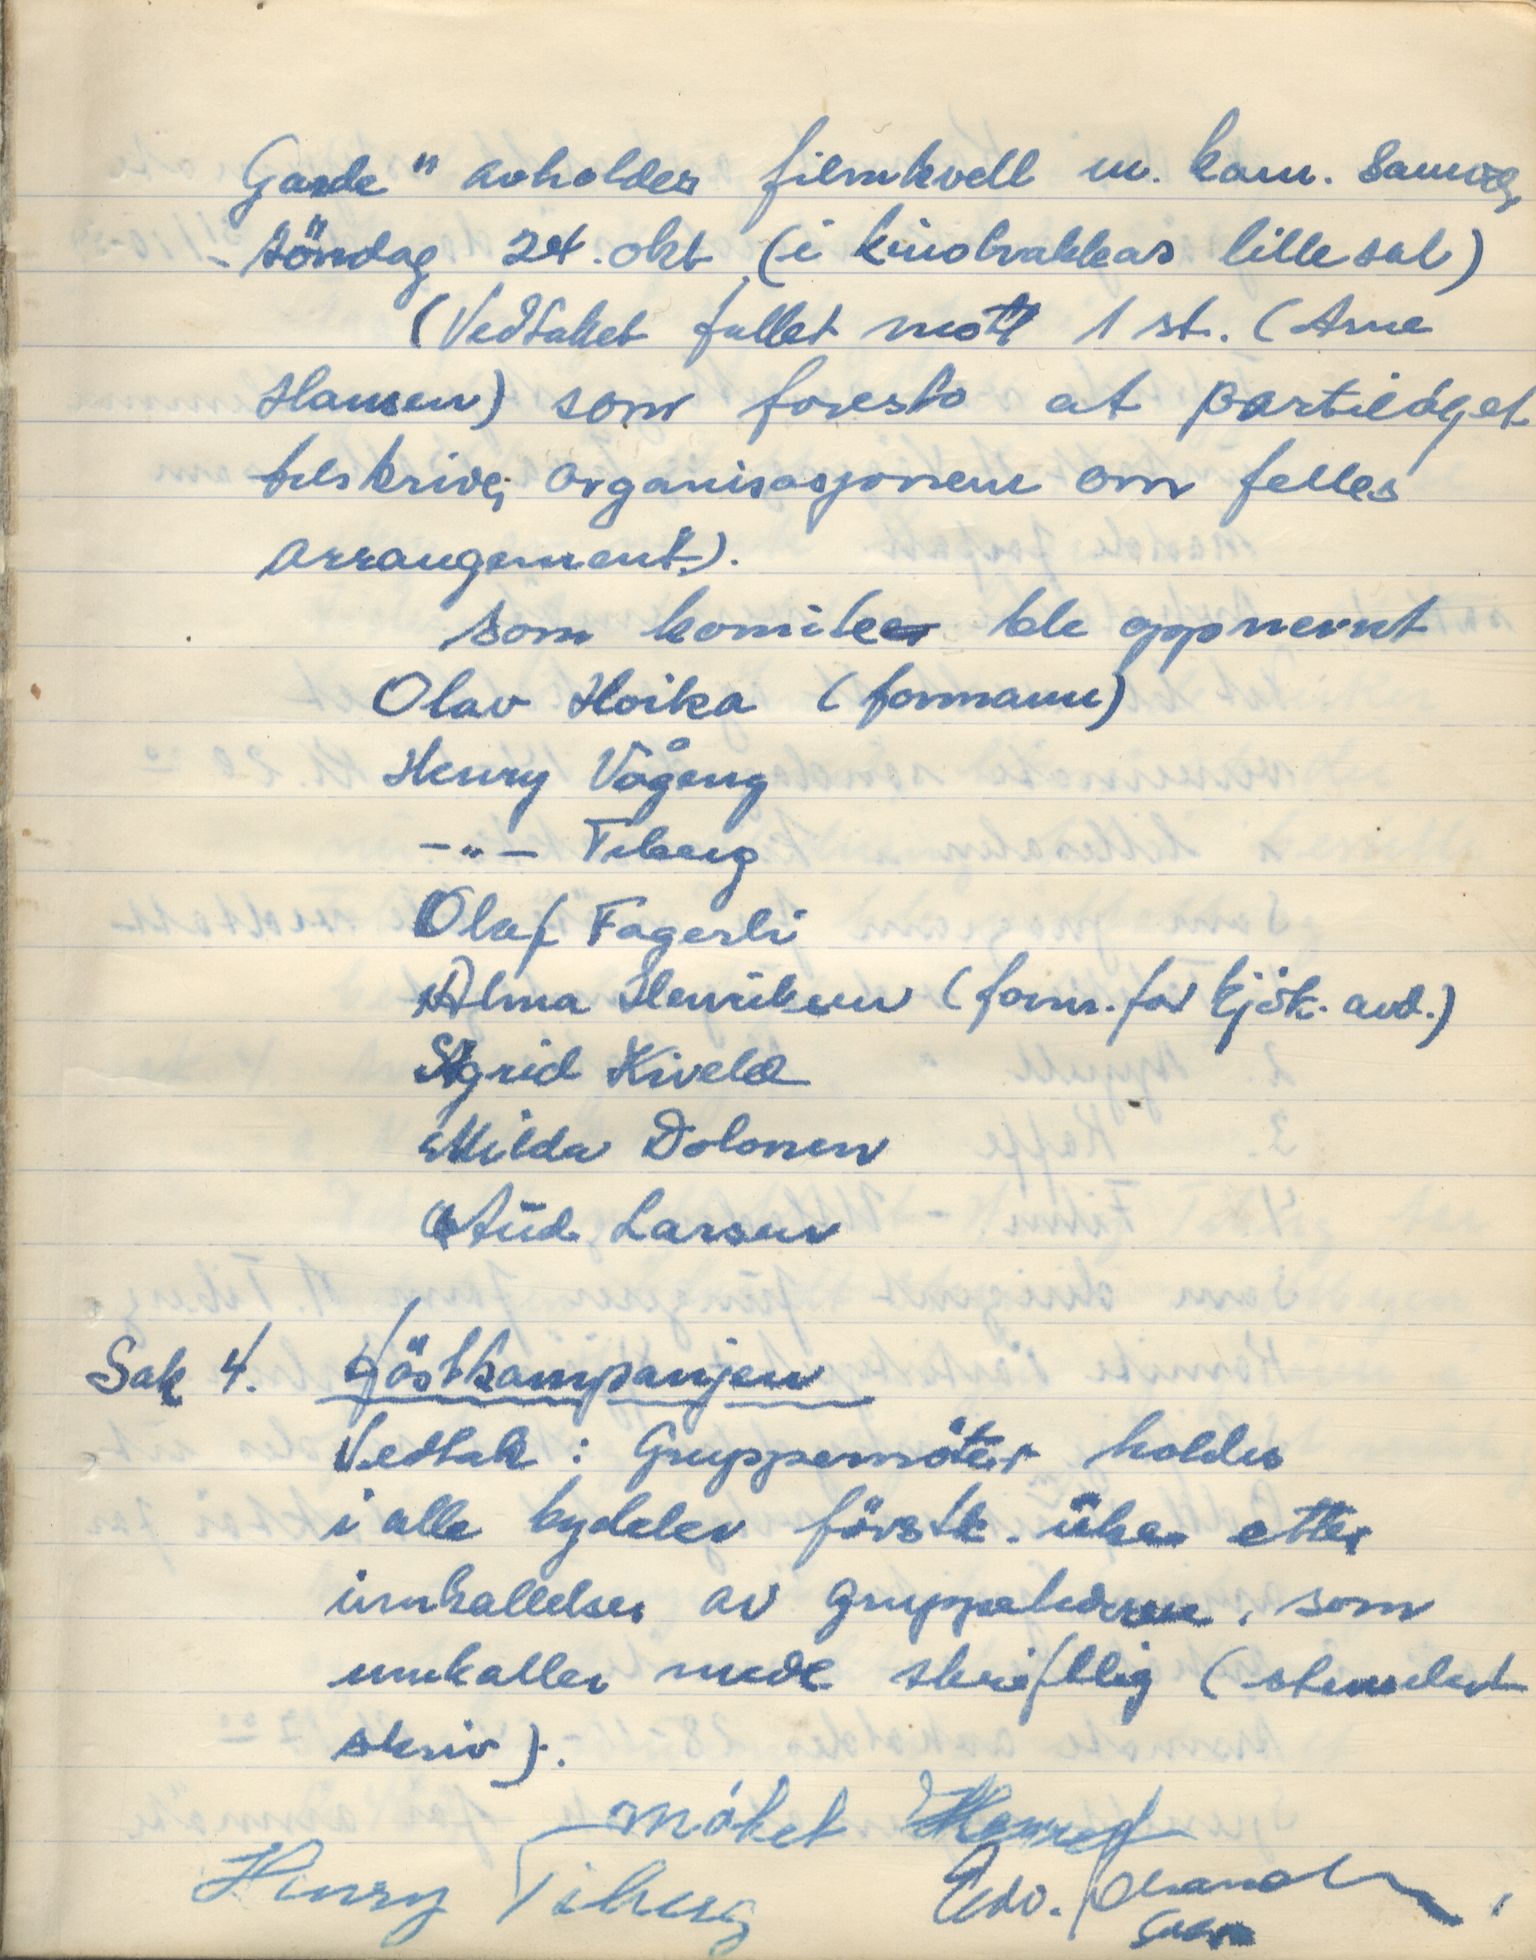 Garde" avholder filmkvell m. kam. samv.
söndag 24. okt (i kinobrakkas lillesal)
(Vedtaket fallet mott 1 st. (Arne
Hansen) som foreslo at partilaget
tilskrive organisasjonene om felles
arrangement).
Som komite ble oppnevnt
Olav Hoika (formann)
Henry Vågeng
-"- Tiberg
Olaf Fagerli
Alma Henriksen (form. for kjök. avd.)
Sigrid Kivelæ
Milda Dolonen
Aud Larsen
Sak 4. Höstkampanjen
Vedtak: Gruppemöter holdes
i alle bydeler förstk. uke etter
innkallelser av gruppelederne, som
innkaller med skriftlig (stensilert
skriv).
Möket Hevet
Henry Tiberg Edv.